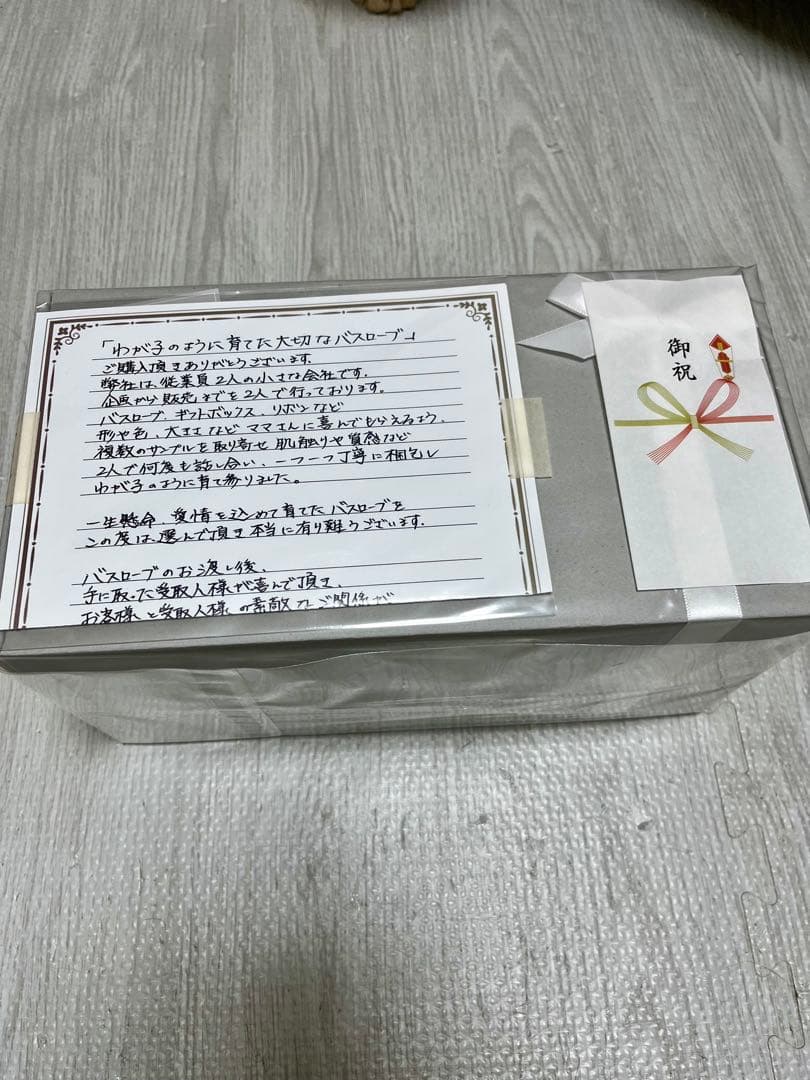 「わが子のように育てた大切なバスローブ」
ご購入頂きありがとうございます。
弊社は、従業員2人の小さな会社です。
企画から販売までを2人で行っております。
バスローブ、ギフトボックス、リボンなど
形や色、大きさなどママさんに喜んでもらえるよう、
複数のサンプルを取り寄せ肌触りや質感など
2人で何度も話し合い、一つ一つ丁寧に梱包し
わが子のように育て参りました。
一生懸命、愛情を込めて育てたバスローブを
この度は、選んで頂き本当に有り難うございます。
バスローブのお渡し後、
手に取った受取人様が喜んで頂き、
お客様と受取人様の素敵なご関係が
御祝